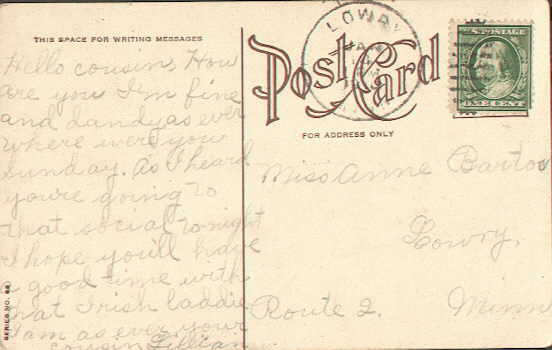 THIS SPACE FOR WRITING MESSAGES
Hello cousin, How
are you I'm fine
and dandy as ever
where were you
Sunday. as I heard
you're going to
that social to-night
I hope you'll have
a good time with
that Irish laddie
I am as ever your
cousin Lillian
SERIES NO.
Post Card
FOR ADDRESS ONLY
LOWRY
JAN
U.S. POSTAGE
ONE CENT
Miss Anne Bartos
Lowry,
Route 2. Minn